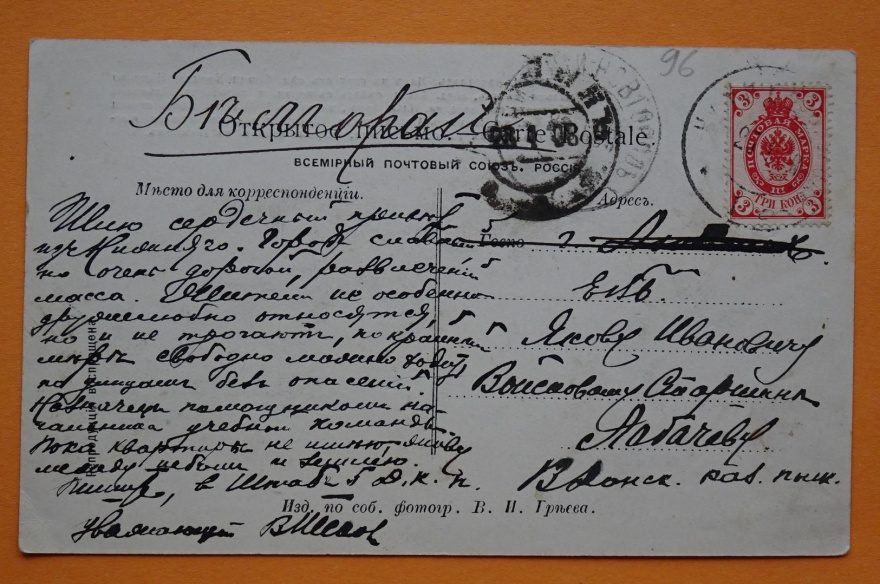 96
Бѣлгорай
Открытое письмо. — Carte Postale.
ВСЕМІРНЫЙ ПОЧТОВЫЙ СОЮЗЪ, РОССІЯ
Мѣсто для корреспонденціи.
Адресъ.
3 3
ПОЧТОВАЯ МАРКА
3 ТРИ КОП. 3
Шлю сердечный привѣтъ
изъ Кишинева. Городъ славный
но очень дорогой, развлеченій
масса. Жители не особенно
дружелюбно относятся,
но и не трогаютъ, по крайней
мѣрѣ свободно можно ходить
по улицамъ безъ опасенія.
Назначенъ помощникомъ на-
чальника учебной команды.
Пока квартиры не имѣю, живу
между небомъ и землею.
Пишите, въ Штабъ 5 Д. к. п.
Уважающій
Госпо г.
Евб.
Якову Ивановичу
Войсковому Старшинѣ
Лабачеву
В Донск. каз. полк.
Изд. по соб. фотогр. В. П. Грѣева.